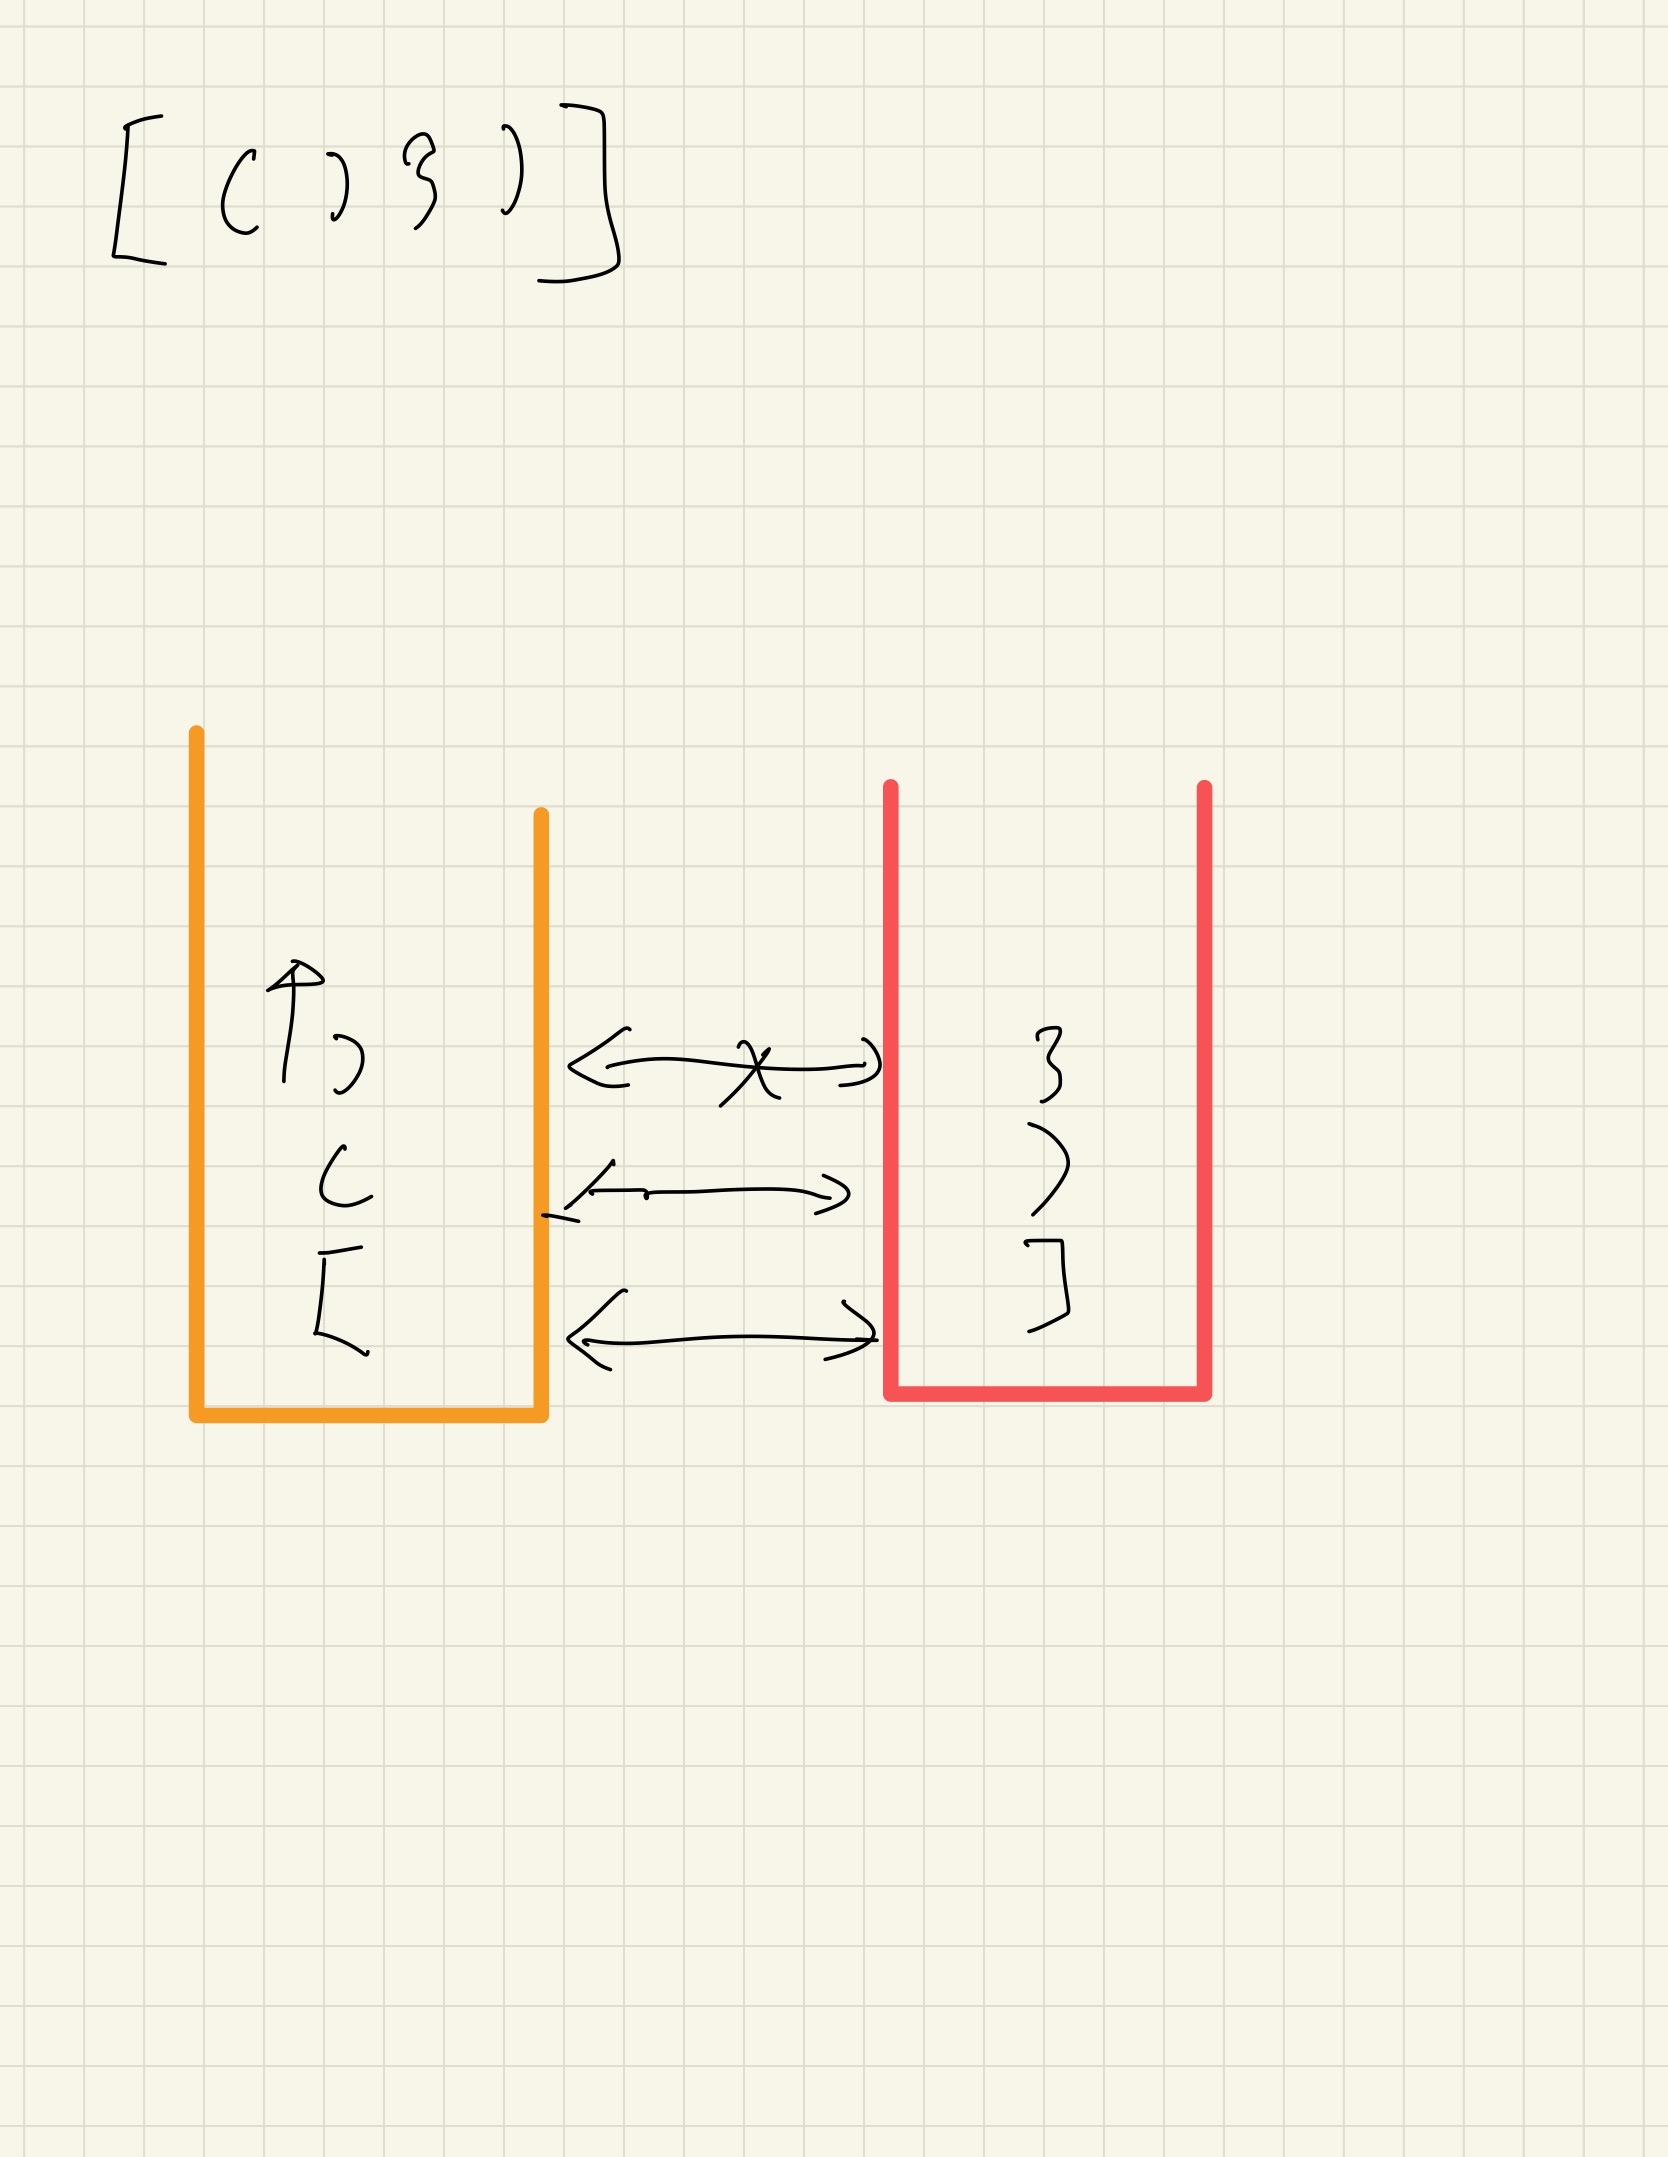 [ ( ) } ) ]
) }
( )
[ ]